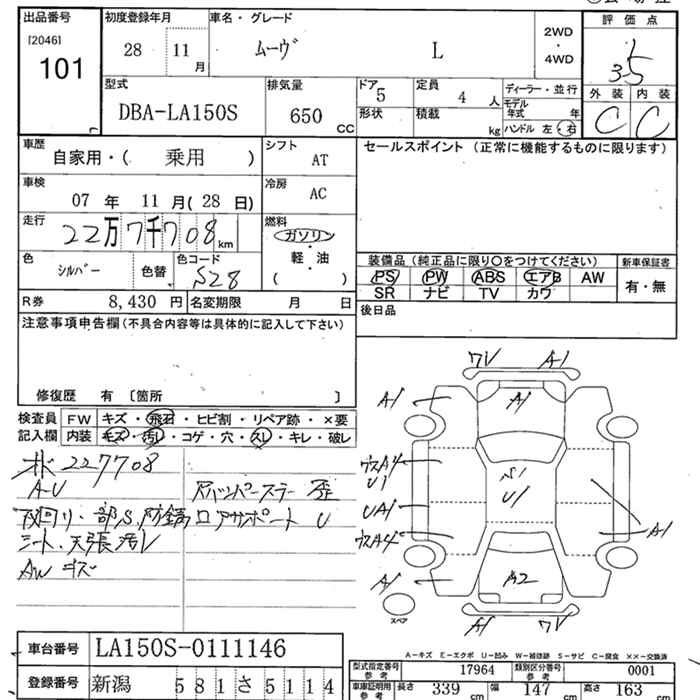 出品番号 初度登録年月 車名・グレード 評価点
[2046] 28 11月 ムーヴ L 2WD・4WD 3.5
101
型式 排気量 ドア 定員 ディーラー・並行 外装 内装
DBA-LA150S 650 CC 5 4 人 モデル年式 年 C C
形状 積載 kg ハンドル 左・右
車歴 自家用・( 乗用 ) シフト AT セールスポイント (正常に機能するものに限ります)
車検 07 年 11 月( 28 日) 冷房 AC
走行 22万7千708km 燃料 ガソリン・軽・油 ( )
色 シルバー 色替 色コード S28
装備品 (純正品に限り〇をつけてください) 新車保証書
PS PW ABS エアB AW 有・無
SR ナビ TV カワ
R券 8,430 円 名変期限 月 日 後日品
注意事項申告欄(不具合内容等は具体的に記入して下さい)
修復歴 有 〔箇所 〕
検査員記入欄 FW キズ・飛石・ヒビ割・リペア跡・×要
内装 キズ・汚レ・コゲ・穴・スレ・キレ・破レ
227708
A-U
下回り・一部S.防錆 ロアサポート U
シート、天張汚レ
AW キズ
7V A1
A1 A1
ウスA4 U1
S1 U1
UA1
ウスA4 A1
A1 A2
A1 7V
スペア
A-キズ E-エクボ U-凹み W-補修跡 S-サビ C-腐食 ××-交換済
車台番号 LA150S-0111146
登録番号 新潟 581さ5114
型式指定番号 参考 17964 類別区分番号 参考 0001
車庫証明用 参考 長さ 339 cm 幅 147 cm 高さ 163 cm